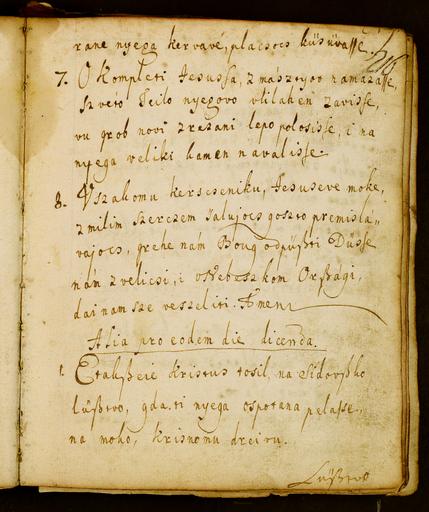 rane nyega kervavé, placsocs küsüvasse.
216
7. O kompleti Jesussa, z mastyov namazasse,
szvéto Teilo nyegovo vlilahen zavisse,
vu grob novi zrezani lepo polosisse, i na
nyega veliki kamen navalisse.
8. Vszakomu kerscseniku, Jesuseve moke,
z milim szerczem salujocs goszto premisla„
vajocs, grehe nám Boug odpüszti Düsse
nám zvelicsi, i v Nebeszkom Orszagi,
dai nam sze veszeliti. Amen
Alia pro eodem die dicenda.
1. Etaksseie Kristus tosil, na Sidovszko
lüsztvo, gda ti nyega ospotana pelasse,
na moko, krisnomu dreivu.
Lüsztvo